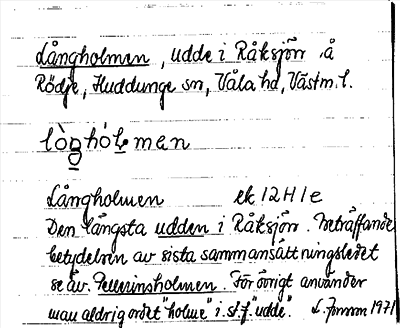 Långholmen, udde i Råksjön å
Rödje, Huddunge sn, Våla hd, Västm. l.
lòŋhólmen
Långholmen ek 12H1e
Den längsta udden i Råksjön. Beträffande
betydelsen av sista sammansättningsledet
se äv. Pellerinsholmen. För övrigt använder
man aldrig ordet "holme" i st. f. "udde". 1971